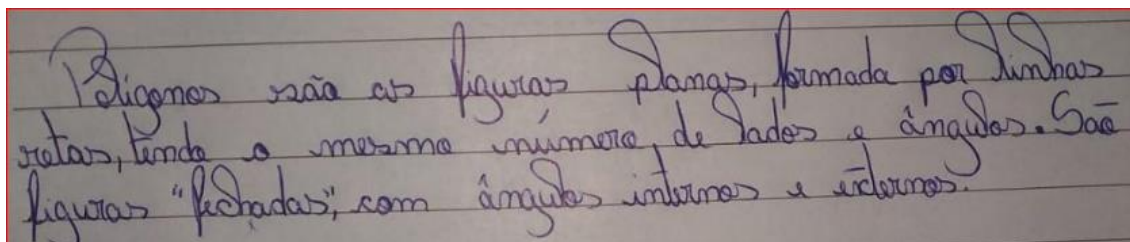 Polígonos são as figuras planas, formada por linhas
retas, tendo o mesmo número de lados e ângulos. São
figuras "fechadas", com ângulos internos e externos.